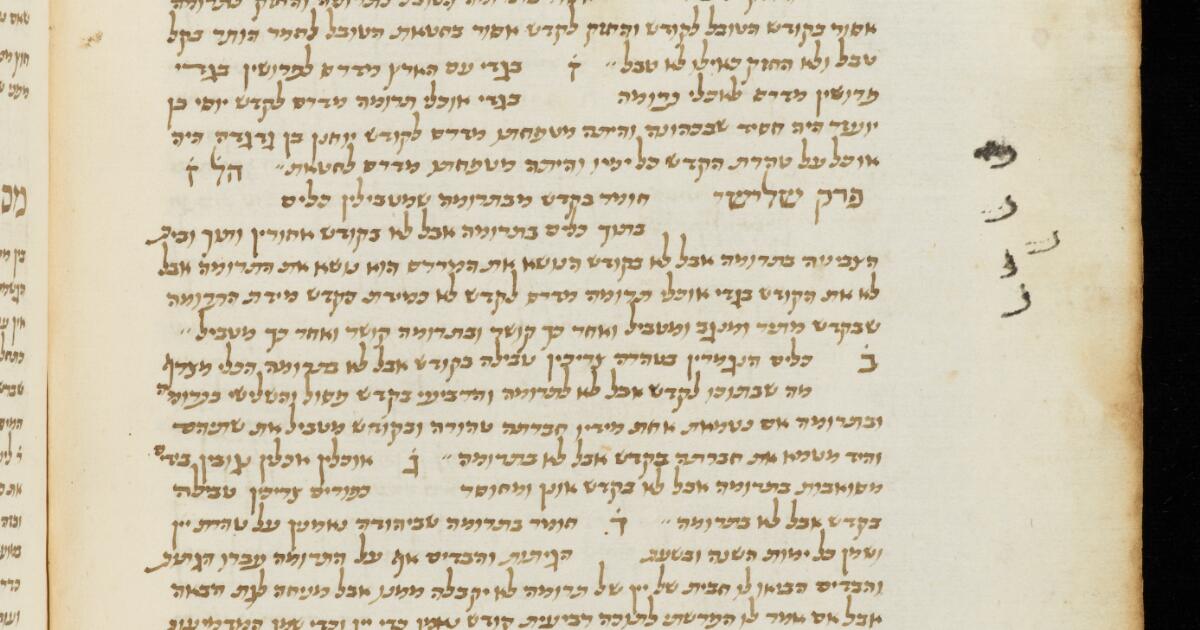 אסור בקודש הטובל לקודש והחזק לקדש אסור בחטאת הטובל לחמר הותר בקל
טבל ולא החזק כאילו לא טבל ״ ז בגדי עם הארץ מדרס לפרושין בגדי
פרושין מדרס לאוכלי תרומה בגדי אוכלי תרומה מדרס לקדש יוסי בן
יועזר היה חסיד שבכהונה והיתה מטפחתו מדרס לקודש יוחנן בן גדגדה היה
אוכל על טהרת הקדש כל ימיו והיתה מטפחתו מדרס לחטאת ״ הל ז
פרק שלישי חומר בקדש מבתרומה שמטבילין כלים
בתוך כלים בתרומה אבל לא בקודש אחורין ותוך ובית
הצביטה בתרומה אבל לא בקודש הנושא את המדרס הוא נושא את התרומה אבל
לא את הקודש בגדי אוכלי תרומה מדרס לקדש לא כמידת הקדש מידת התרומה
שבקדש מתיר ומנגב ומטביל ואחר כך קושר ובתרומה קושר ואחר כך מטביל ״
ב כלים הנגמרין בטהרה צריכין טבילה בקודש אבל לא בתרומה הכלי מצרף
מה שבתוכו לקדש אבל לא לתרומה והרביעי בקדש פסול והשלישי בתרומה
ובתרומה אם נטמאת אחת מידיו חברתה טהורה ובקודש מטביל את שתיהם
והיד מטמא את חברתה בקדש אבל לא בתרומה ״ ג אוכלין אכלין נגובין בידים
מסואבות בתרומה אבל לא בקדש אונן ומחוסר כפורים צריכין טבילה
בקדש אבל לא בתרומה ״ ד חומר בתרומה שביהודה נאמנין על טהרת יין
ושמן כל ימות השנה ובשעת הגיתות והבדים אף על התרומה עברו הגתות
והבדים הביאו לו חבית של יין של תרומה לא יקבלה ממנו אבל מניחה לגת הבאה
אבל אם אמר לו הפרשתי לתוכה רביעית קודש נאמן כדי יין וכדי שמן המדומעות